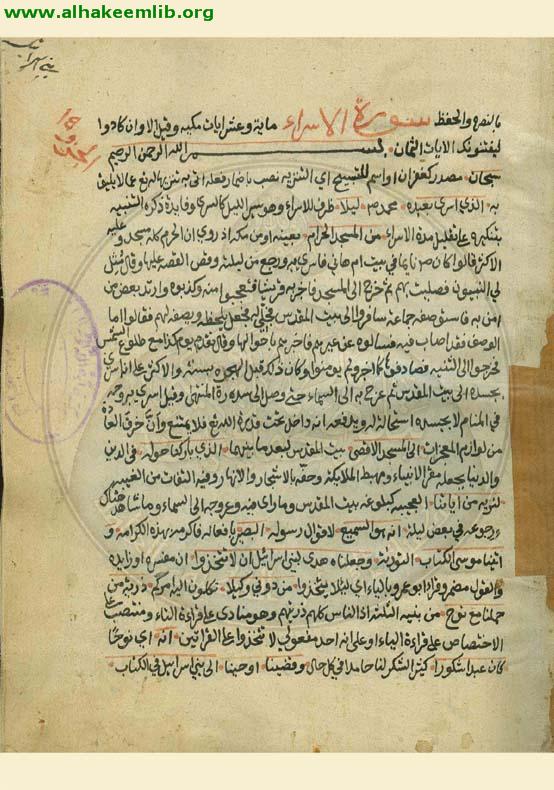 www.alhakeemlib.org
بني اسرائيل
بالنصر والحفظ سورة الاسراء ماية وعشر ايات مكية وقيل الا وان كادوا
ليفتنونك الايات الثمان بسم الله الرحمن الرحيم
سبحان مصدر كغفران او اسم للتسبيح اي التنزيه نصب باضمار فعله اتى به تنزيها له تع عما لا يليق
به الذي اسرى بعبده محمد ص ليلا ظرف للاسراء وهو سير الليل كالسرى وفايدة ذكره التنبيه
بتنكيره على تقليل مدة الاسراء من المسجد الحرام بعينه او من مكة اذ روي ان الحرم كله مسجد وعليه
الاكثر قالوا كان ص نايما في بيت ام هاني فاسري به ورجع من ليلته وقص القصة عليها وقال مثل
لي النبيون فصليت بهم ثم خرج الى المسجد فاخبر به قريشا فتعجبوا منه وكذبوه وارتد بعض من
امن به فاستوصفه جماعة سافروا الى بيت المقدس فجلي له فجعل يلحظه ويصفه لهم فقالوا اما
الوصف فقد اصاب فيه فسالوه عن عيرهم فاخبرهم باحوالها وقال تقدم يوم كذا مع طلوع الشمس
فخرجوا الى الثنية فصادفوها كما اخبر ولم يومنوا وكان ذلك قبل الهجرة بسنة والاكثر على انه اسري
بجسده الى بيت المقدس ثم عرج به الى السماء حتى وصل الى سدرة المنتهى وقيل اسري بروحه
في المنام لا بجسده استحالة له ويدفعه انه داخل تحت قدرة الله تع فلا يمتنع وان خرق العادة
من لوازم المعجزات الى المسجد الاقصى بيت المقدس لبعد ما بينهما الذي باركنا حوله في الدين
والدنيا بجعله مقر الانبياء ومهبط الملايكة وحفه بالاشجار والانهار وفيه التفات من الغيبة
لنريه من اياتنا العجيبة كبلوغه بيت المقدس وما راى فيه وعروجه الى السماء وما شاهد هناك
ورجوعه في بعض ليلة انه هو السميع لاقوال رسوله البصير بافعاله فاكرمه بهذه الكرامة و
اتينا موسى الكتاب التورية وجعلناه هدى لبني اسرائيل ان لا تتخذوا ان مفسره او زايدة
والقول مضمر وقرا ابو عمرو بالياء اي ليلا يتخذوا من دوني وكيلا تكلون اليه امركم ذرية من
حملنا مع نوح من بنيه الثلثة اذ الناس كلهم ذريتهم وهو منادى على قراءة التاء ومنتصب على
الاختصاص على قراءة الياء او على انه احد مفعولي لا تتخذوا على القراتين انه اي نوحا
كان عبدا شكورا كثير الشكر لنا حامدا في كل حال وقضينا اوحينا الى بني اسرايل في الكتاب